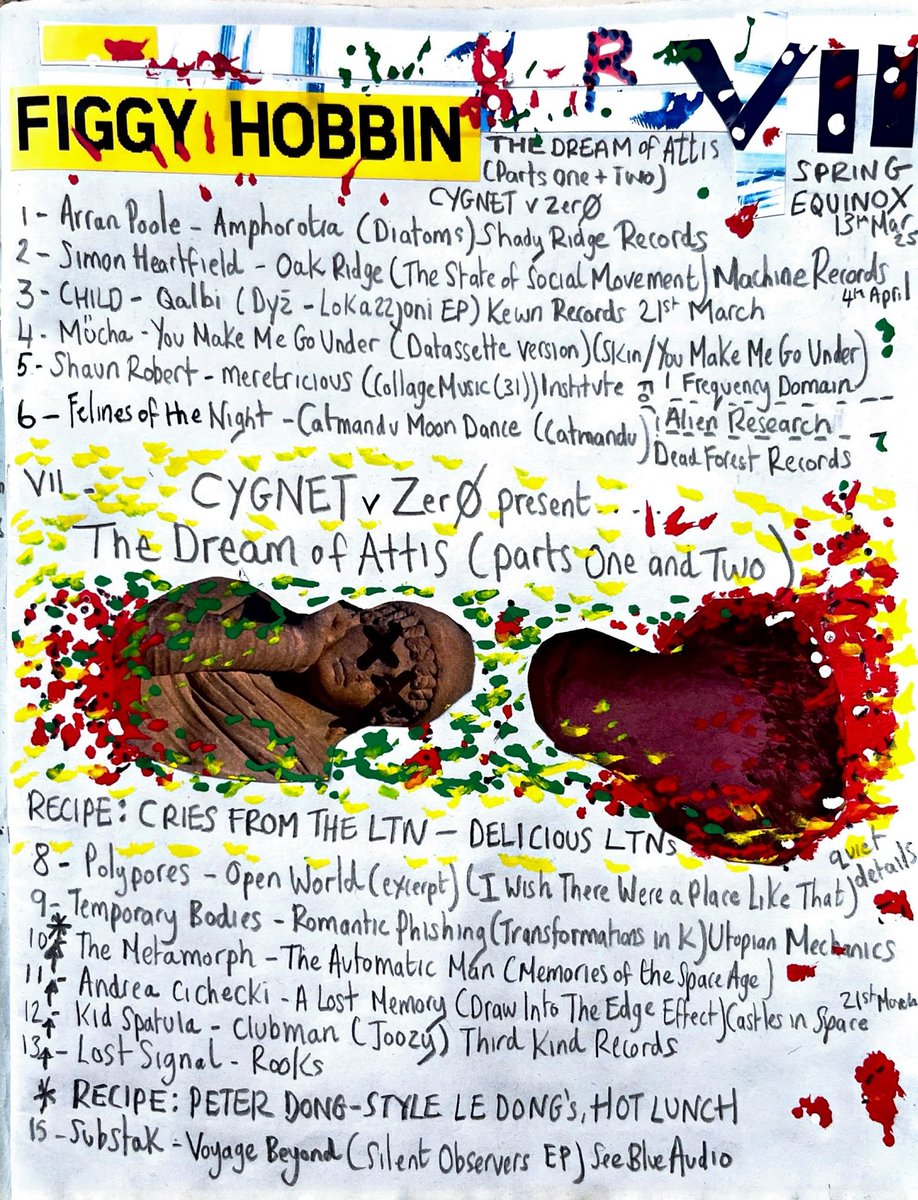 R VII
FIGGY HOBBIN
THE DREAM of Attis
(Parts One + Two)
CYGNET v Zerø
SPRING
EQUINOX
13th Mar
25
1 - Arran Poole - Amphorotia (Diatoms) Shady Ridge Records
2 - Simon Heartfield - Oak Ridge (The State of Social Movement) Machine Records
4th April
3 - CHILD - Qalbi (Dyż - Lokazzjoni EP) Kewn Records 21st March
4 - Möcha - You Make Me Go Under (Datassette version) (Skin/You Make Me Go Under)
5 - Shaun Robert - meretricious (Collage Music (31)) Institute
Frequency Domain
6 - Felines of the Night - Catmandu Moon Dance (Catmandu)
Alien Research
Dead Forest Records
VII -
CYGNET v Zerø present.....
The Dream of Attis (parts One and Two)
RECIPE: CRIES FROM THE LTN - DELICIOUS LTNs
8 - Polypores - Open World (excerpt) (I Wish There Were a Place Like That) quiet details
9 - Temporary Bodies - Romantic Phishing (Transformations in K) Utopian Mechanics
*
10 - The Metamorph - The Automatic Man (Memories of the Space Age)
11 - Andrea Cichecki - A Lost Memory (Draw Into The Edge Effect) Castles in Space 21st March
12 - Kid Spatula - Clubman (Joozy) Third Kind Records
13 - Lost Signal - Rooks
* RECIPE: PETER DONG-STYLE LE DONG's, HOT LUNCH
15 - Substak - Voyage Beyond (Silent Observers EP) See Blue Audio